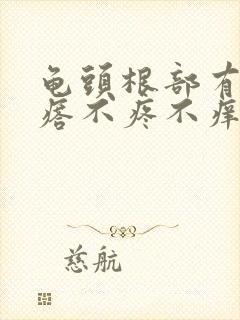 龟頭根部有
痞不疼不痒
慈航